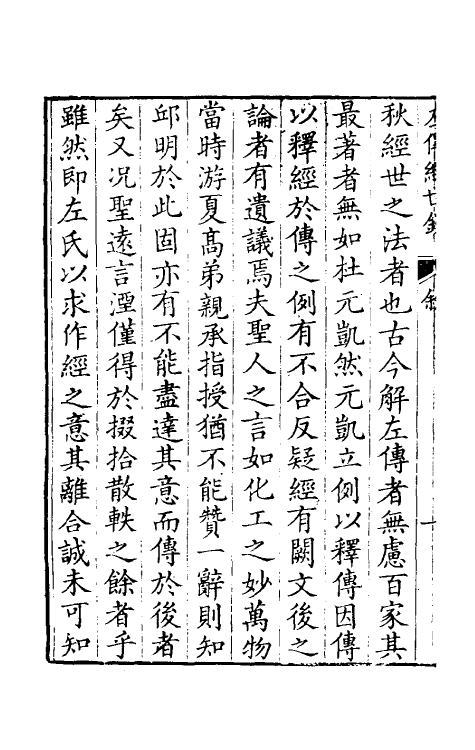 秋經世之法者也古今解左傳者無慮百家其
最著者無如杜元凱然元凱立例以釋傳因傳
以釋經於傳之例有不合反疑經有闕文後之
論者有遺議焉夫聖人之言如化工之妙萬物
當時游夏高弟親承指授猶不能贊一辭則知
邱明於此固亦有不能盡達其意而傳於後者
矣又況聖遠言湮僅得於掇拾散軼之餘者乎
雖然即左氏以求作經之意其離合誠未可知